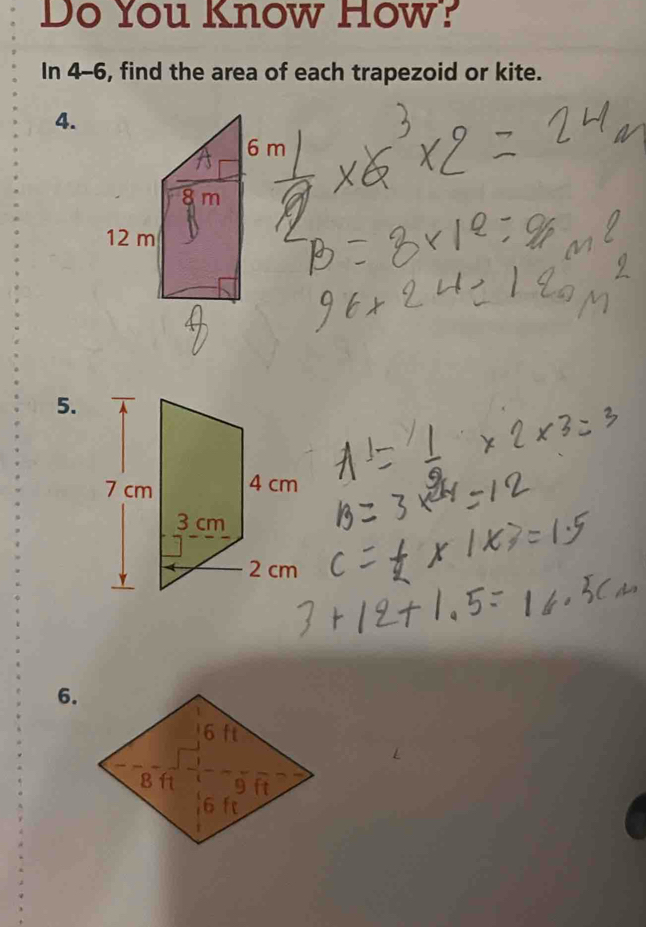 Do You Know How?
In 4–6, find the area of each trapezoid or kite.
4.
A
6 m
8 m
B
12 m
8
1/2 × 6 3 × 2 = 24 m
B = 8 × 12 = 96 m2
96 + 24 = 120 m2
5.
7 cm
4 cm
3 cm
2 cm
A = 1/2 × 2 × 3 = 3
B = 3 × 4 = 12
C = 1/2 × 1 × 3 = 1.5
3 + 12 + 1.5 = 16.5 cm
6.
6 ft
8 ft
9 ft
6 ft